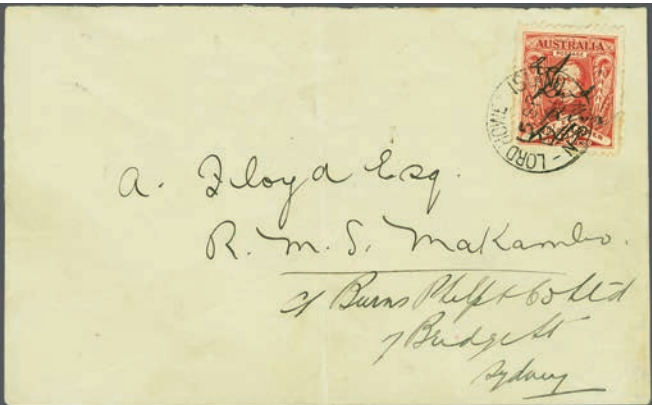 AUSTRALIA
POSTAGE
LORD HOWE ISLAND
A. Floyd Esq.
R. M. S. Makambo.
c/ Burns Philp & Co Ltd
7 Bridge St
Sydney